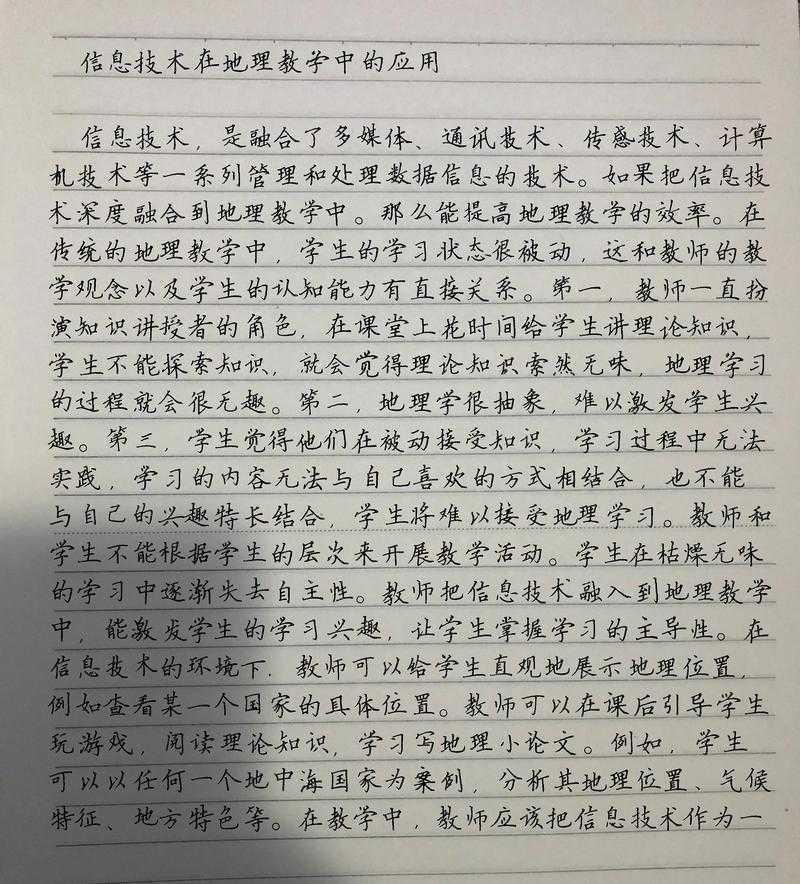 信息技术在地理教学中的应用
信息技术，是融合了多媒体、通讯技术、传感技术、计算
机技术等一系列管理和处理数据信息的技术。如果把信息技
术深度融合到地理教学中。那么能提高地理教学的效率。在
传统的地理教学中，学生的学习状态很被动，这和教师的教
学观念以及学生的认知能力有直接关系。第一，教师一直扮
演知识讲授者的角色，在课堂上花时间给学生讲理论知识，
学生不能探索知识，就会觉得理论知识索然无味，地理学习
的过程就会很无趣。第二，地理学很抽象，难以激发学生兴
趣。第三，学生觉得他们在被动接受知识，学习过程中无法
实践，学习的内容无法与自己喜欢的方式相结合，也不能
与自己的兴趣特长结合，学生将难以接受地理学习。教师和
学生不能根据学生的层次来开展教学活动。学生在枯燥无味
的学习中逐渐失去自主性。教师把信息技术融入到地理教学
中，能激发学生的学习兴趣，让学生掌握学习的主导性。在
信息技术的环境下，教师可以给学生直观地展示地理位置，
例如查看某一个国家的具体位置。教师可以在课后引导学生
玩游戏，阅读理论知识，学习写地理小论文。例如，学生
可以以任何一个地中海国家为案例，分析其地理位置、气候
特征、地方特色等。在教学中，教师应该把信息技术作为一